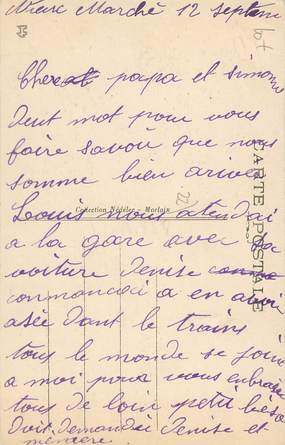 Vieux Marché 12 septem
lot
Cher papa et Simone
Deut mot pour vous
faire savoir que nous
somme bien arive
Collection Nédélec - Morlaix
CARTE POSTALE
Louis nous atendai
a la gare avec sa
voiture Denise
commancai a en avoir
asée dant le trains
tous le monde se join
a moi pour vous enbrasée
tous de loin petit bésé
Doit demandée Denise et
mémère